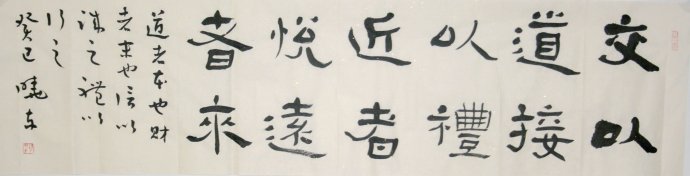 交以
道接
以禮
近者
悅遠
者來
道者本也財
者末也信以
誠之禮以
行之
癸巳曉東